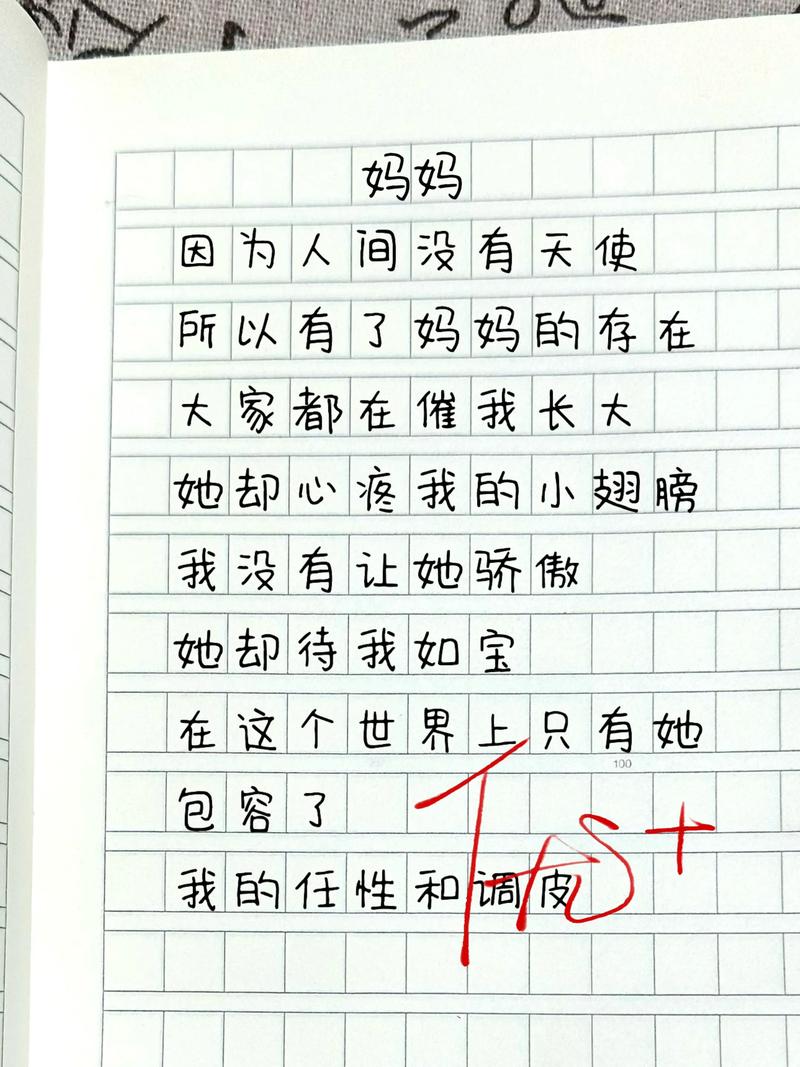 妈妈
因为人间没有天使
所以有了妈妈的存在
大家都在催我长大
她却心疼我的小翅膀
我没有让她骄傲
她却待我如宝
在这个世界上只有她
100
包容了
我的任性和调皮